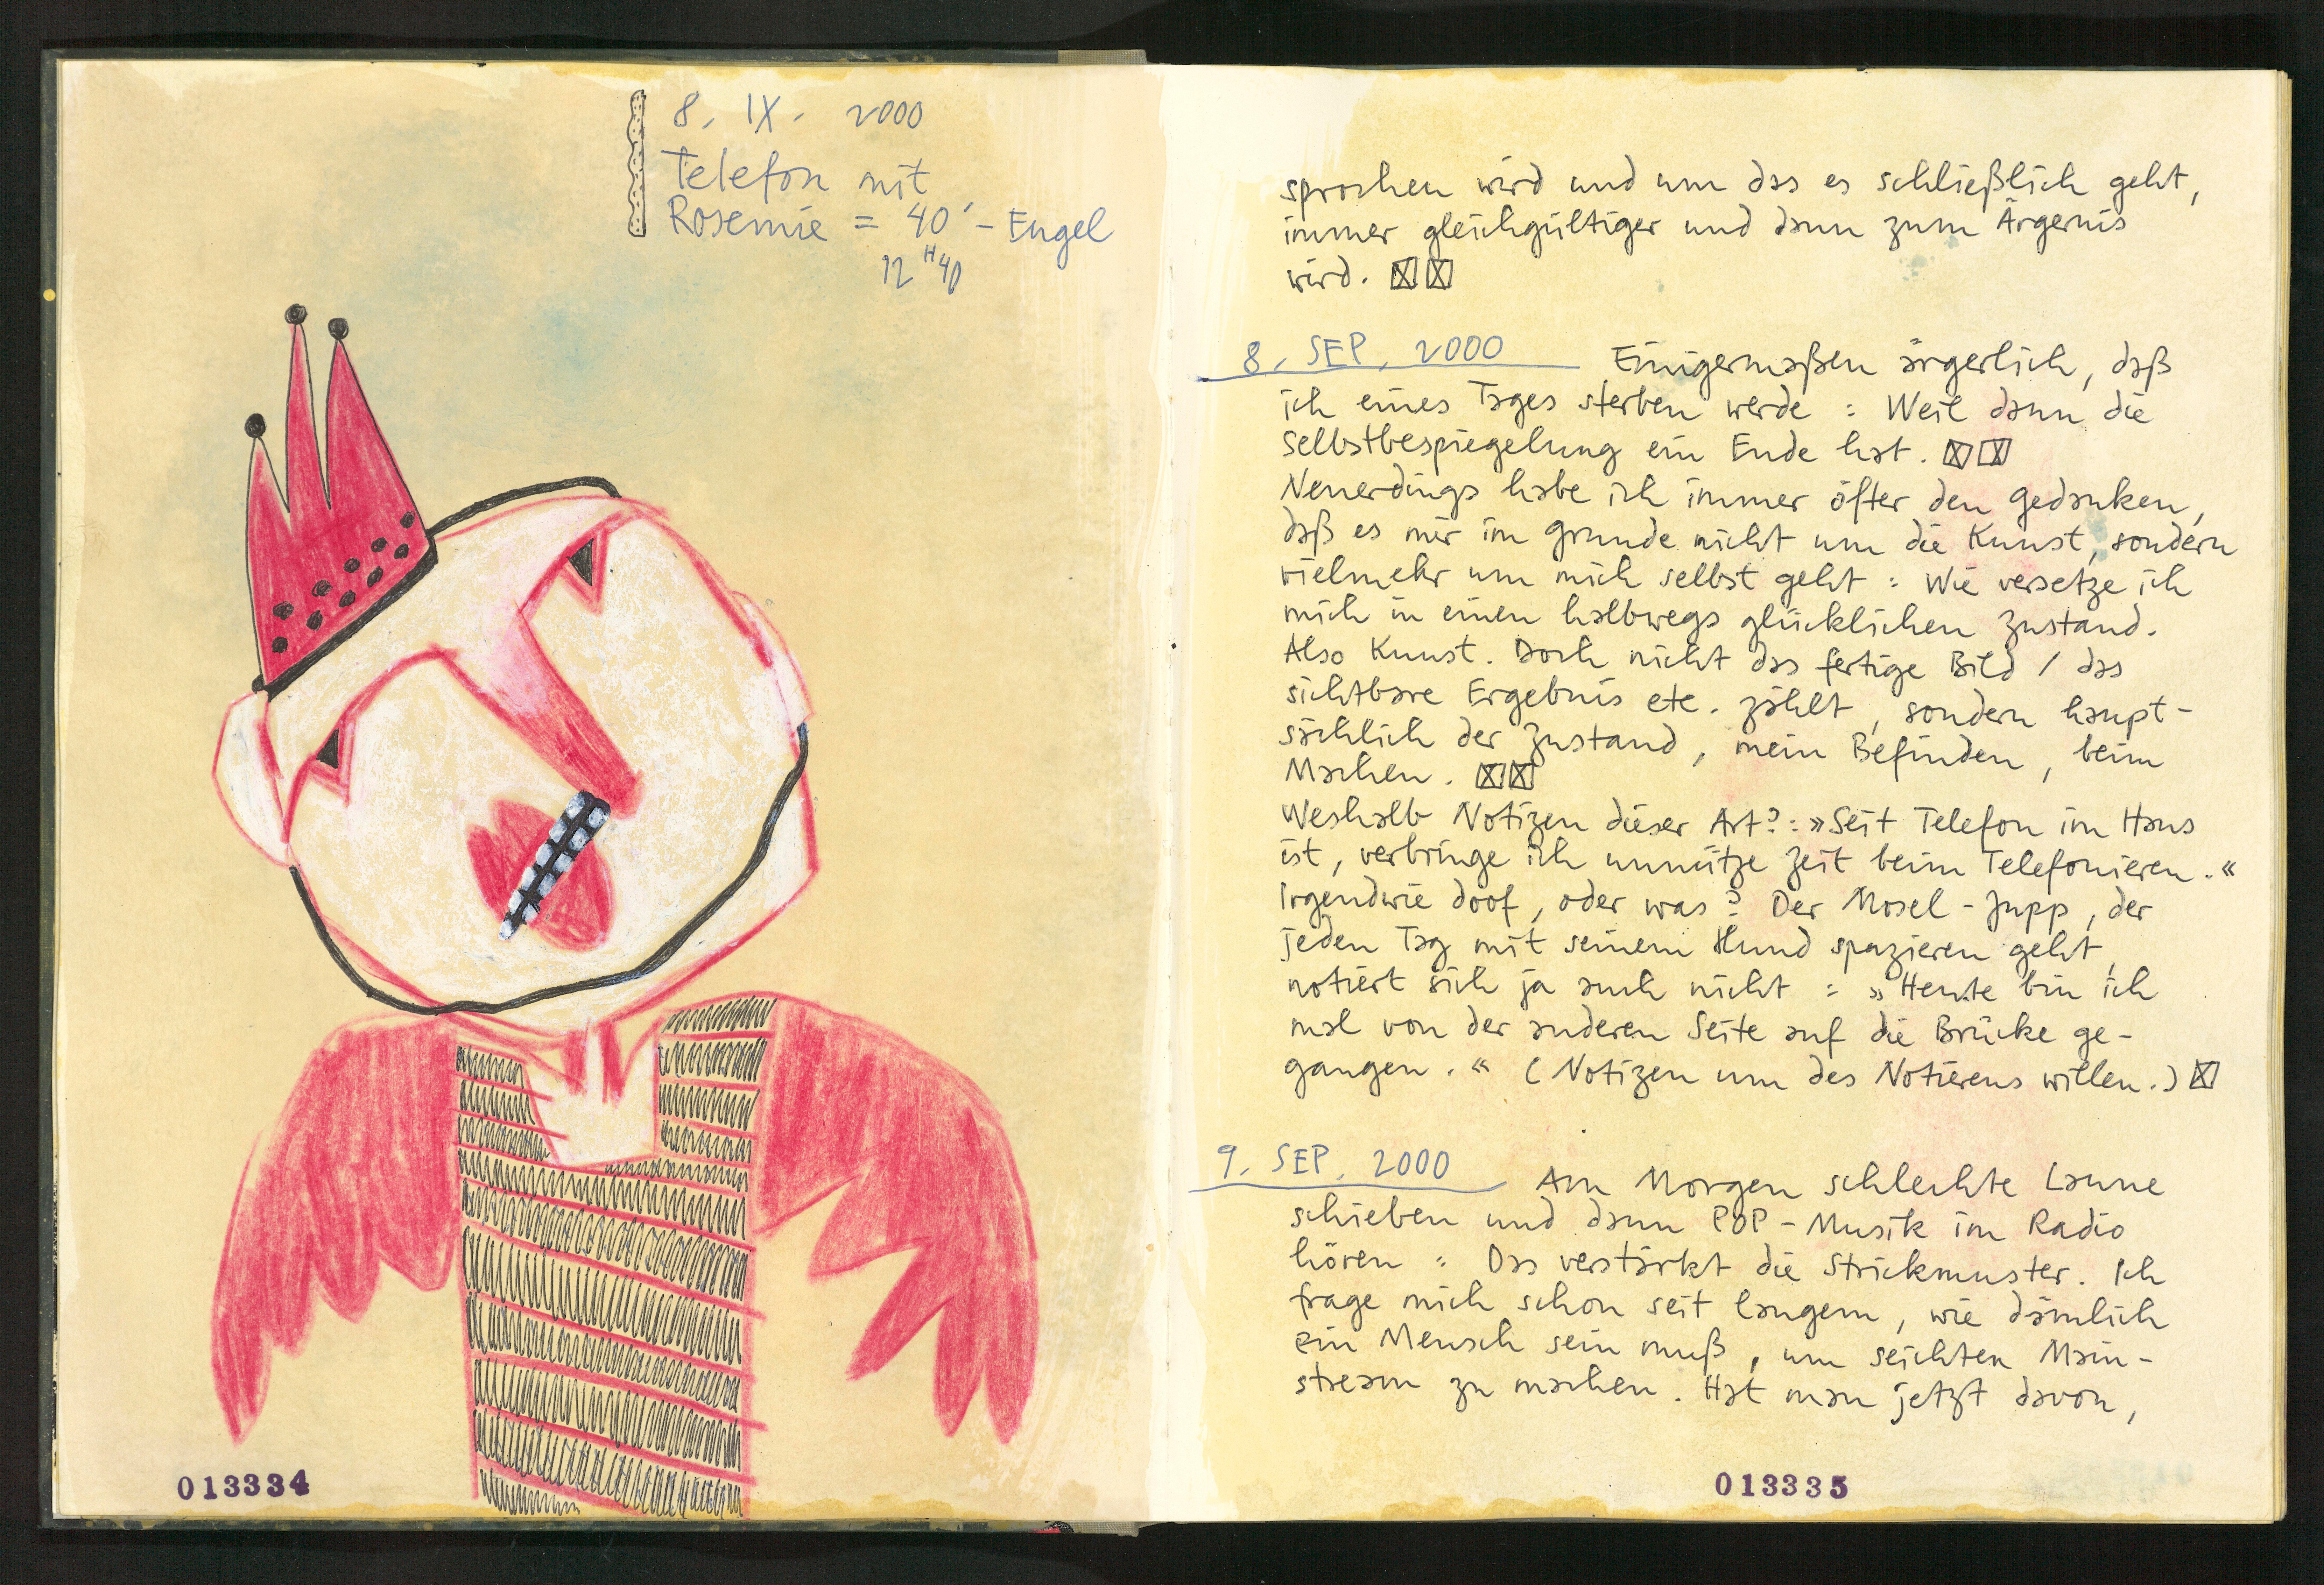 8. IX. 2000
Telefon mit
Rosemie = 40' - Engel
12 H 40
013334
sprochen wird und um das es schließlich geht,
immer gleichgültiger und dann zum Ärgernis
wird. ☒☒
8. SEP. 2000 Einigermaßen ärgerlich, daß
ich eines Tages sterben werde : Weil dann die
Selbstbespiegelung ein Ende hat. ☒☒
Neuerdings habe ich immer öfter den Gedanken,
daß es mir im Grunde nicht um die Kunst, sondern
vielmehr um mich selbst geht : Wie versetze ich
mich in einen halbwegs glücklichen Zustand.
Also Kunst. Doch nicht das fertige Bild / das
sichtbare Ergebnis etc. zählt, sondern haupt-
sächlich der Zustand, mein Befinden, beim
Machen. ☒☒
Weshalb Notizen dieser Art? : »Seit Telefon im Haus
ist, verbringe ich unnütze Zeit beim Telefonieren.«
Irgendwie doof, oder was? Der Mosel-Jupp, der
jeden Tag mit seinem Hund spazieren geht,
notiert sich ja auch nicht : »Heute bin ich
mal von der anderen Seite auf die Brücke ge-
gangen.« (Notizen um des Notierens willen.) ☒
9. SEP. 2000 Am Morgen schlechte Laune
schieben und dann POP-Musik im Radio
hören : Das verstärkt die Strickmuster. Ich
frage mich schon seit langem, wie dämlich
ein Mensch sein muß, um seichten Main-
stream zu machen. Hat man jetzt davon,
013335